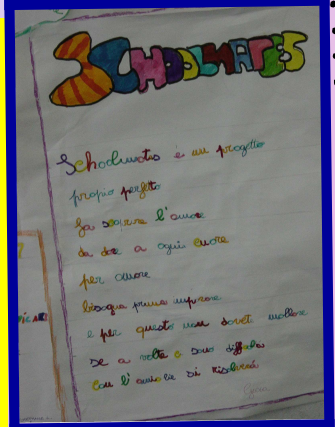 SCHOOLMATES
Schoolmates è un progetto
proprio perfetto
fa scoprire l'amore
da dare a ogni cuore
per amore
bisogna prima
e per questo non dovete mollare
se a volte ci sono
con l'amicizia si risolverà